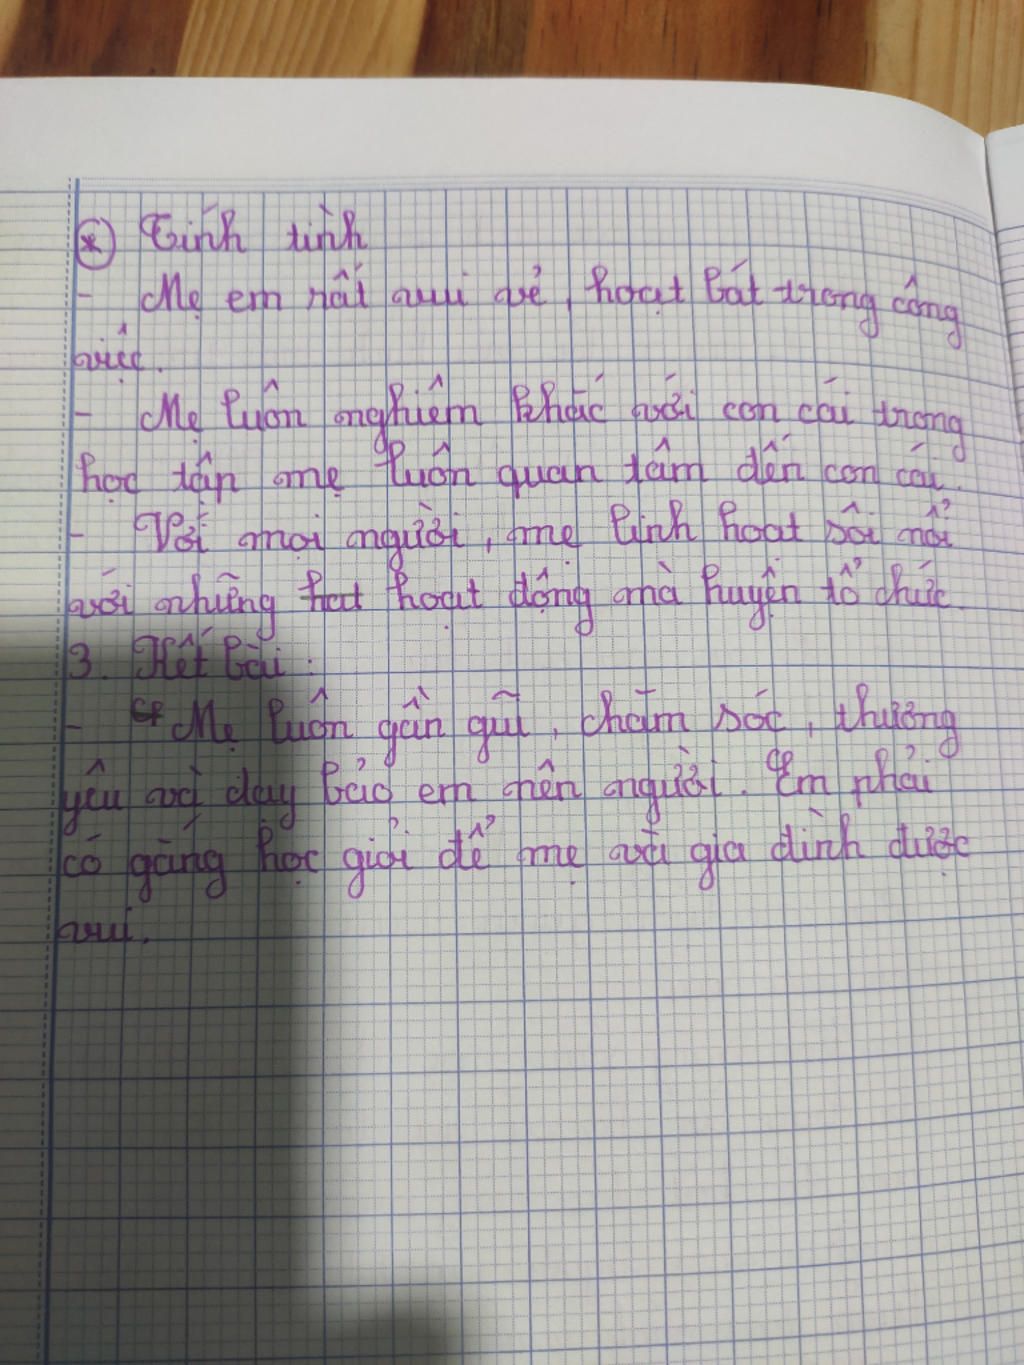 * Tính tình
- Mẹ em rất vui vẻ, hoạt bát trong công
việc.
- Mẹ luôn nghiêm khắc với con cái trong
học tập mẹ luôn quan tâm đến con cái.
- Với mọi người, mẹ linh hoạt sôi nổi
với những hoạt động mà huyện tổ chức.
3. Kết bài:
- Mẹ luôn gần gũi, chăm sóc, thương
yêu và dạy bảo em nên người. Em phải
cố gắng học giỏi để mẹ và gia đình được
vui.